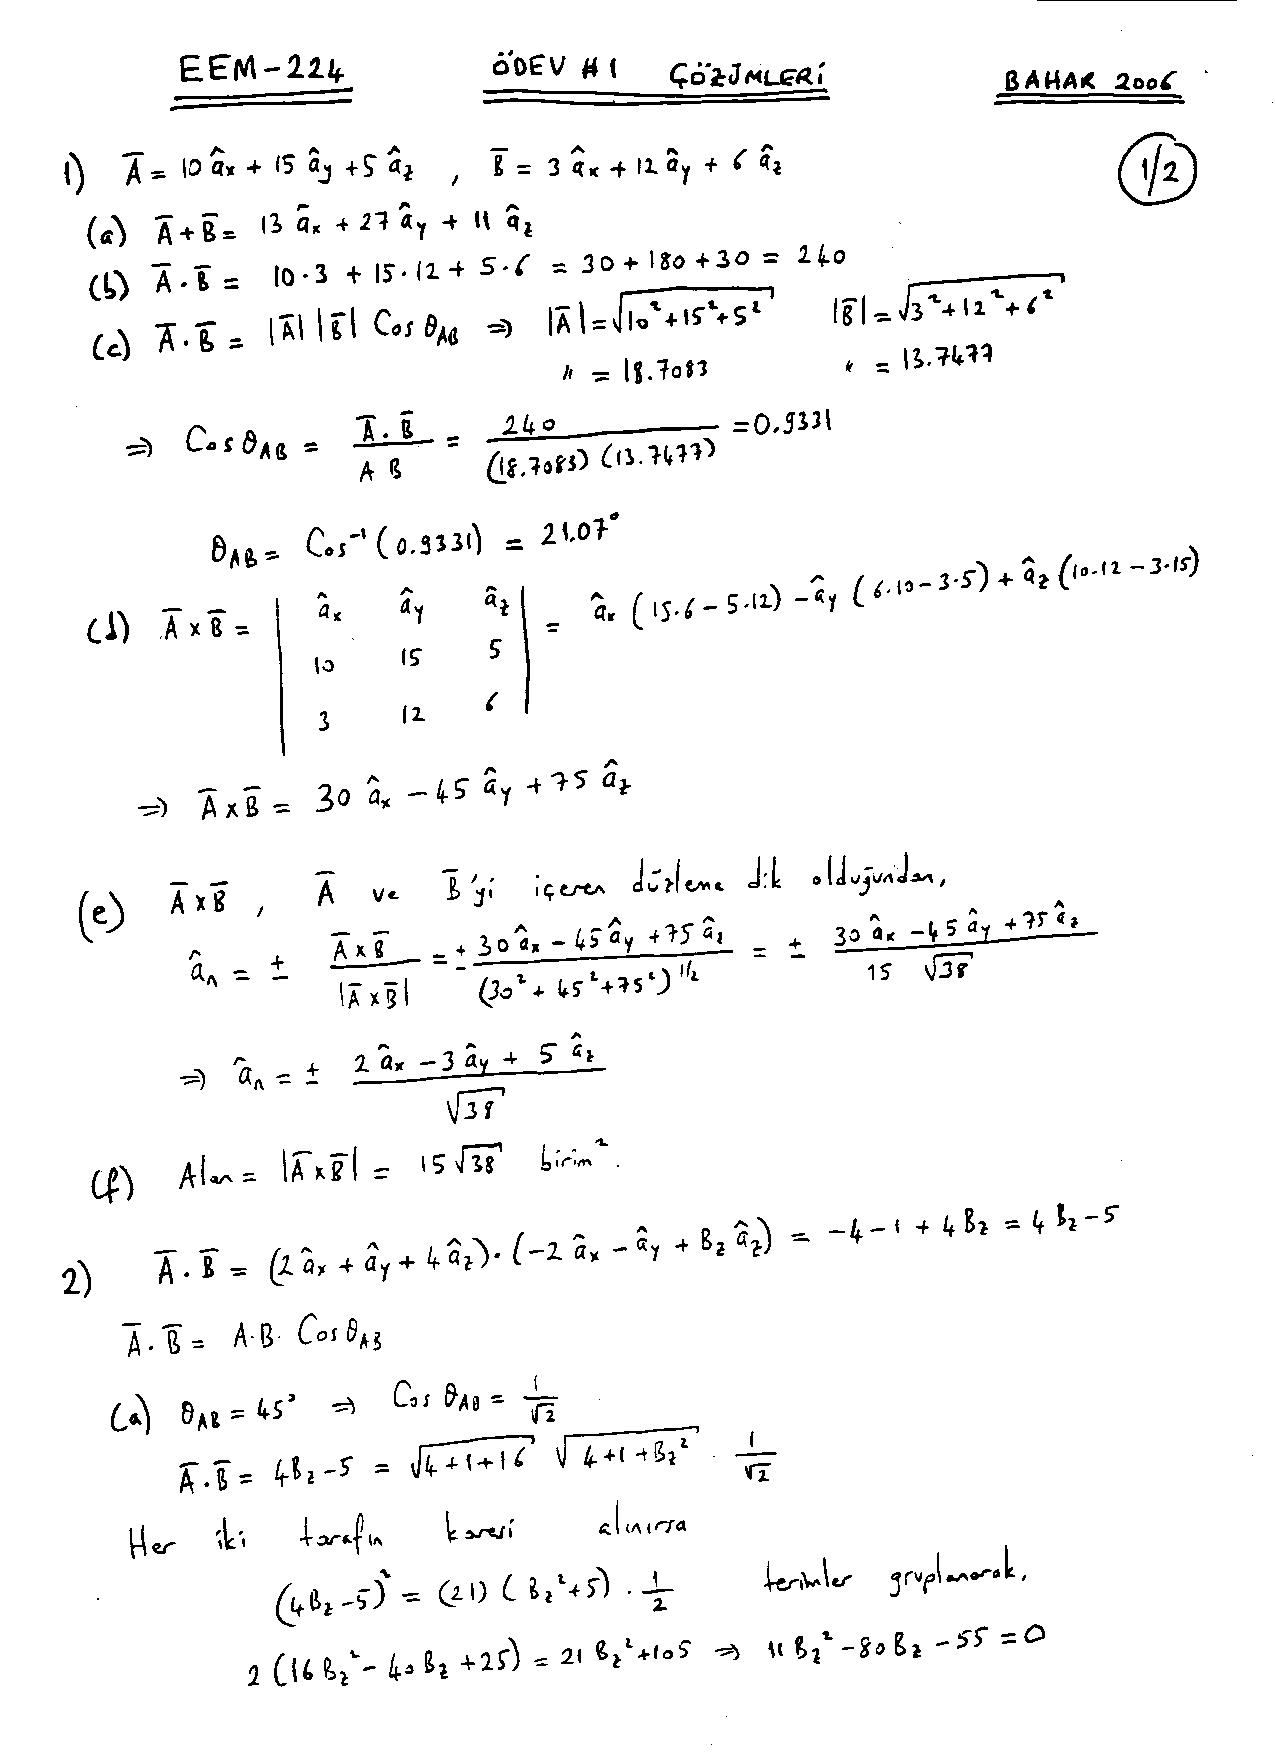 EEM-224 ÖDEV #1 ÇÖZÜMLERİ BAHAR 2006
1/2
1) A̅ = 10 âx + 15 ây + 5 âz , B̅ = 3 âx + 12 ây + 6 âz
(a) A̅ + B̅ = 13 âx + 27 ây + 11 âz
(b) A̅ . B̅ = 10·3 + 15·12 + 5·6 = 30 + 180 + 30 = 240
(c) A̅ . B̅ = |A̅| |B̅| Cos θAB ⇒ |A̅| = √(10² + 15² + 5²) |B̅| = √(3² + 12² + 6²)
" = 18.7083 " = 13.7477
⇒ Cos θAB = A̅ . B̅ / A B = 240 / (18.7083) (13.7477) = 0.9331
θAB = Cos⁻¹ (0.9331) = 21.07°
(d) A̅ x B̅ = | âx ây âz | = âx (15·6 – 5·12) – ây (6·10 – 3·5) + âz (10·12 – 3·15)
10 15 5
3 12 6
⇒ A̅ x B̅ = 30 âx – 45 ây + 75 âz
(e) A̅ x B̅ , A̅ ve B̅'yi içeren düzleme dik olduğundan,
ân = ± A̅ x B̅ / |A̅ x B̅| = ± 30 âx – 45 ây + 75 âz / (30² + 45² + 75²)^1/2 = ± 30 âx – 45 ây + 75 âz / 15 √38
⇒ ân = ± 2 âx – 3 ây + 5 âz / √38
(f) Alan = |A̅ x B̅| = 15 √38 birim².
2) A̅ . B̅ = (2 âx + ây + 4 âz) . (–2 âx – ây + Bz âz) = –4 – 1 + 4 Bz = 4 Bz – 5
A̅ . B̅ = A·B· Cos θAB
(a) θAB = 45° ⇒ Cos θAB = 1/√2
A̅ . B̅ = 4Bz – 5 = √(4+1+16) √(4+1+Bz²) . 1/√2
Her iki tarafın karesi alınırsa
(4Bz – 5)² = (21) (Bz² + 5) . 1/2 terimler gruplanarak,
2 (16 Bz² – 40 Bz + 25) = 21 Bz² + 105 ⇒ 11 Bz² – 80 Bz – 55 = 0